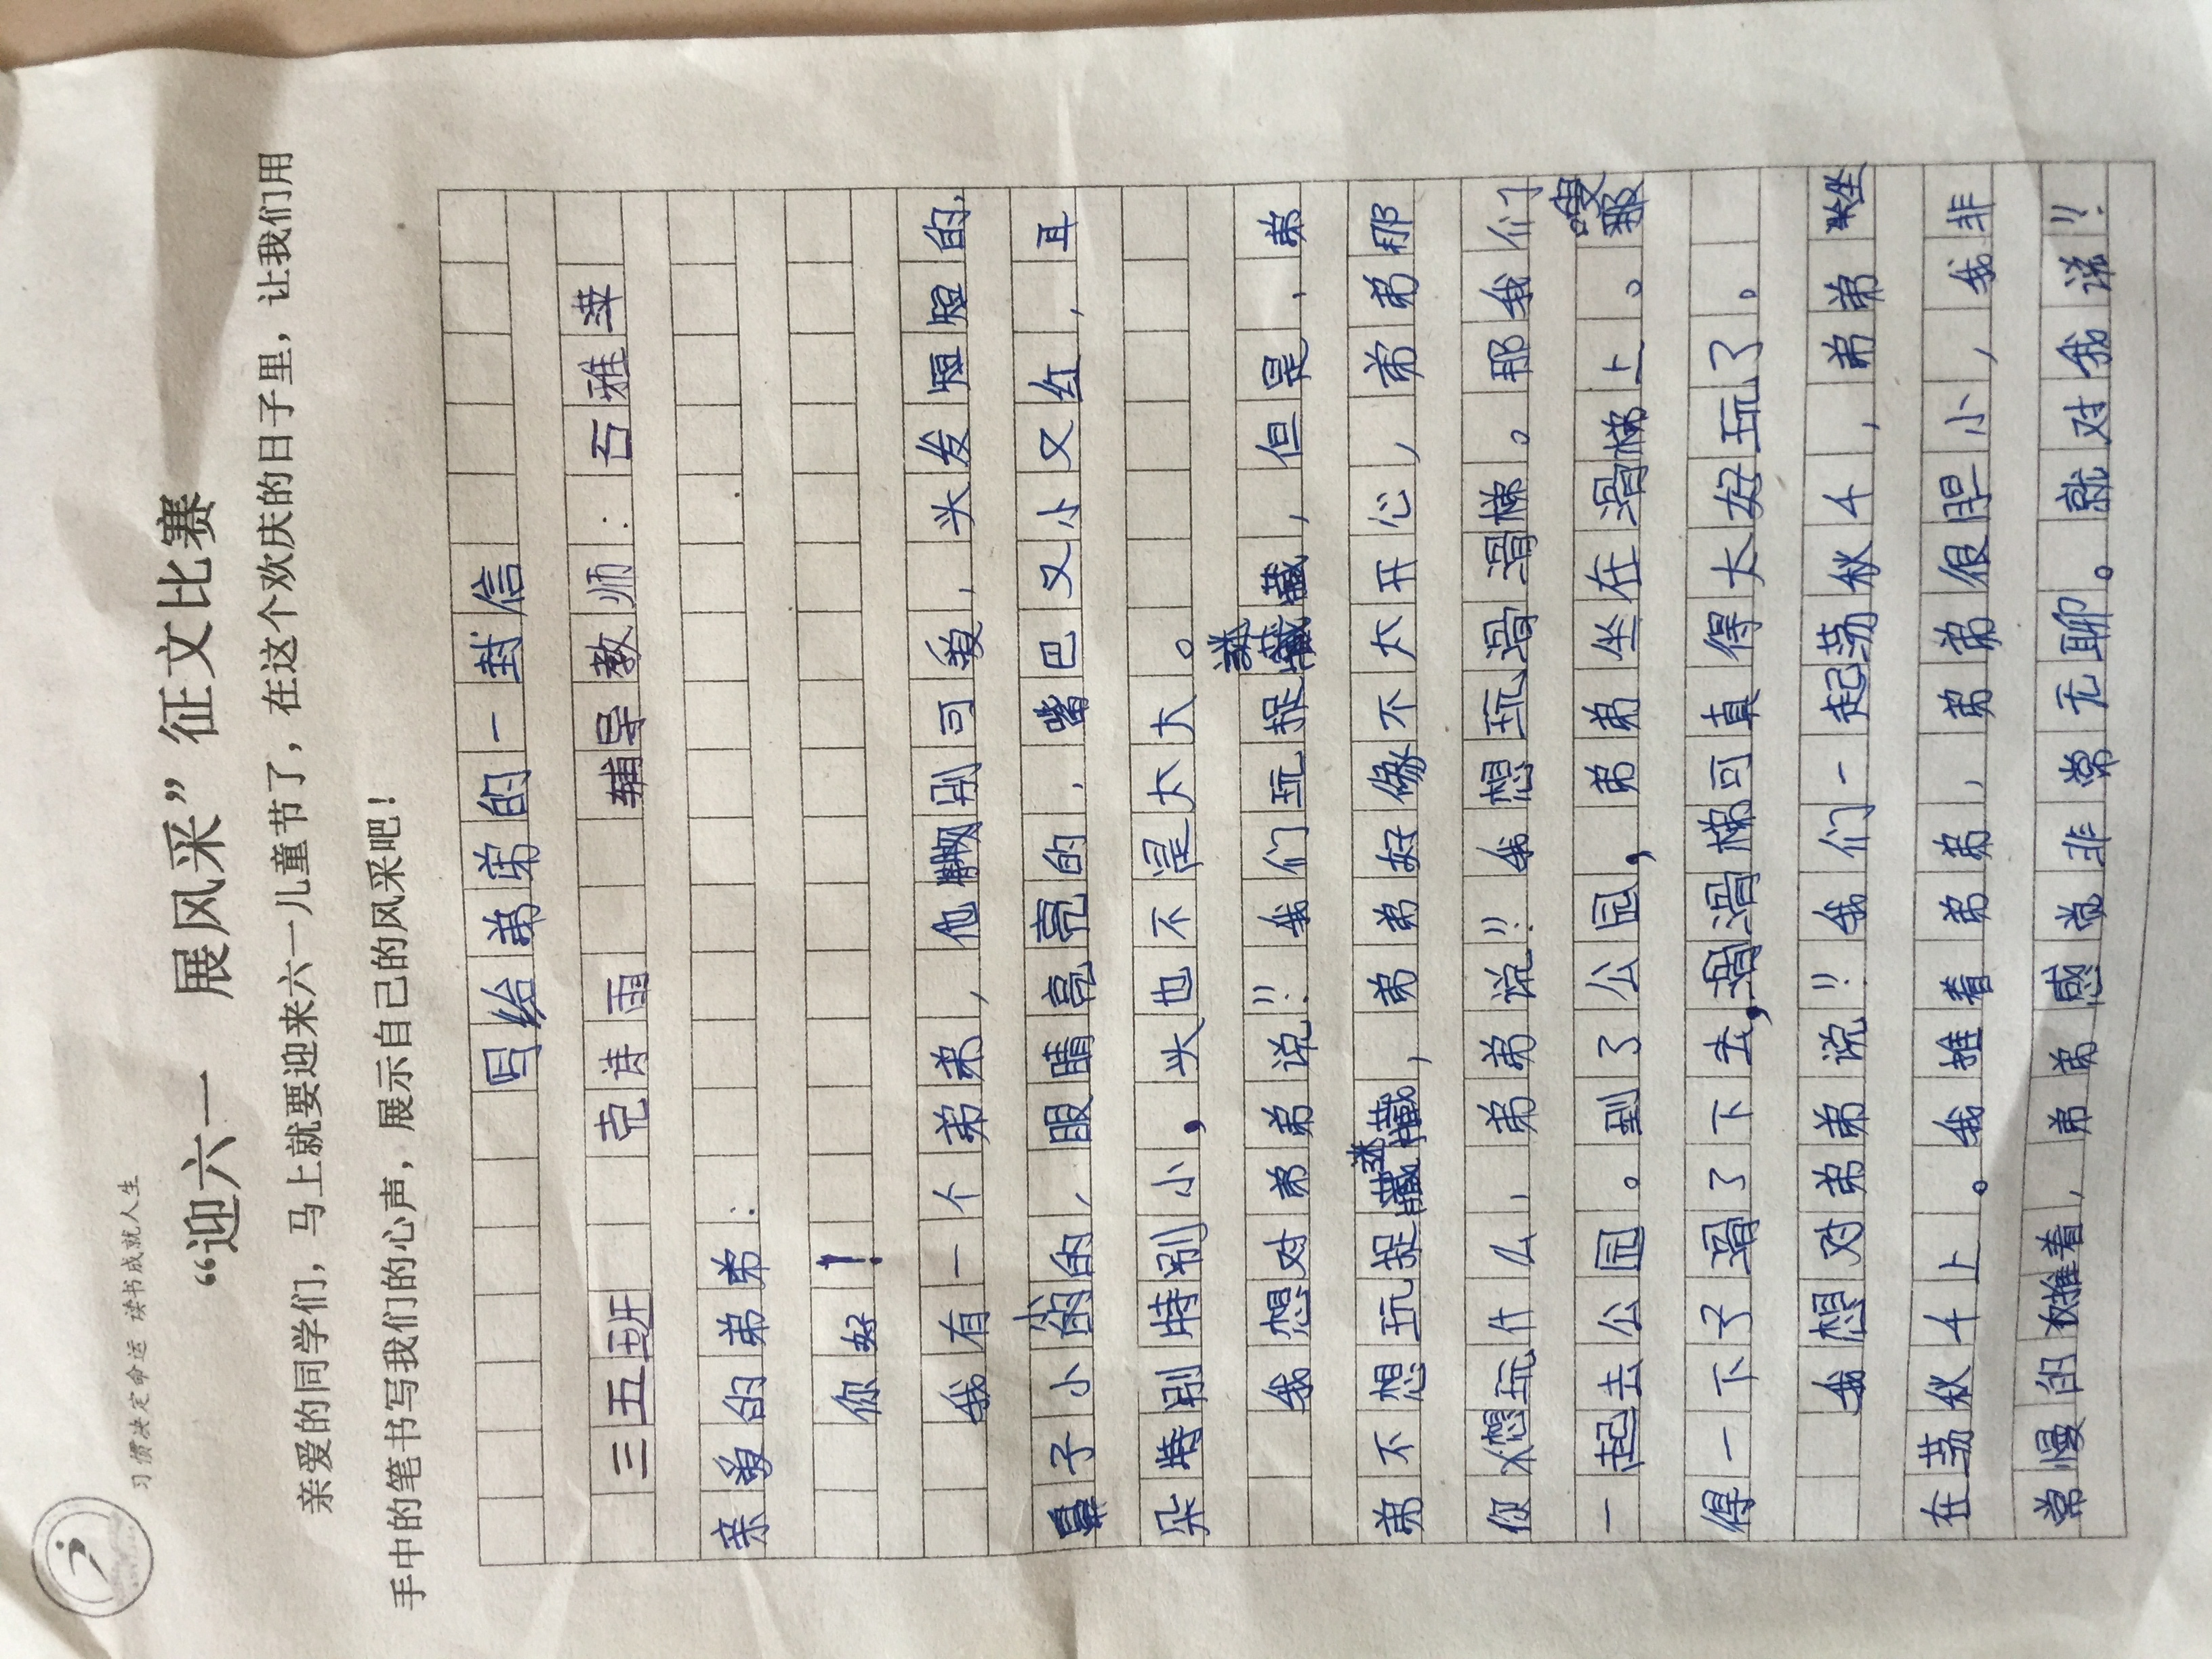 习惯决定命运 读书成就人生
“迎六一 展风采”征文比赛
亲爱的同学们，马上就要迎来六一儿童节了，在这个欢庆的日子里，让我们用
手中的笔书写我们的心声，展示自己的风采吧！
写给弟弟的一封信
三五班 克诗雨 辅导教师：石雅苹
亲爱的弟弟：
你好！
我有一个弟弟，他特别可爱，头发短短的，
鼻子小小的的，眼睛亮亮的，嘴巴又小又红，耳
朵特别特别小，头也不是太大。
我想对弟弟说!!我们玩捉迷藏，但是，弟
弟不想玩捉迷藏，弟弟好像不太开心，弟弟那
你想玩什么，弟弟说!!我想玩滑滑梯。那我们
一起去公园。到了公园，弟弟坐在滑梯上。嗖
得一下子滑了下去，滑滑梯可真得太好玩了。
我想对弟弟说!!我们一起荡秋千，弟弟坐
在荡秋千上。我推着弟弟，弟弟很胆小，我非
常慢的推着，弟弟感觉非常无聊。就对我说!!